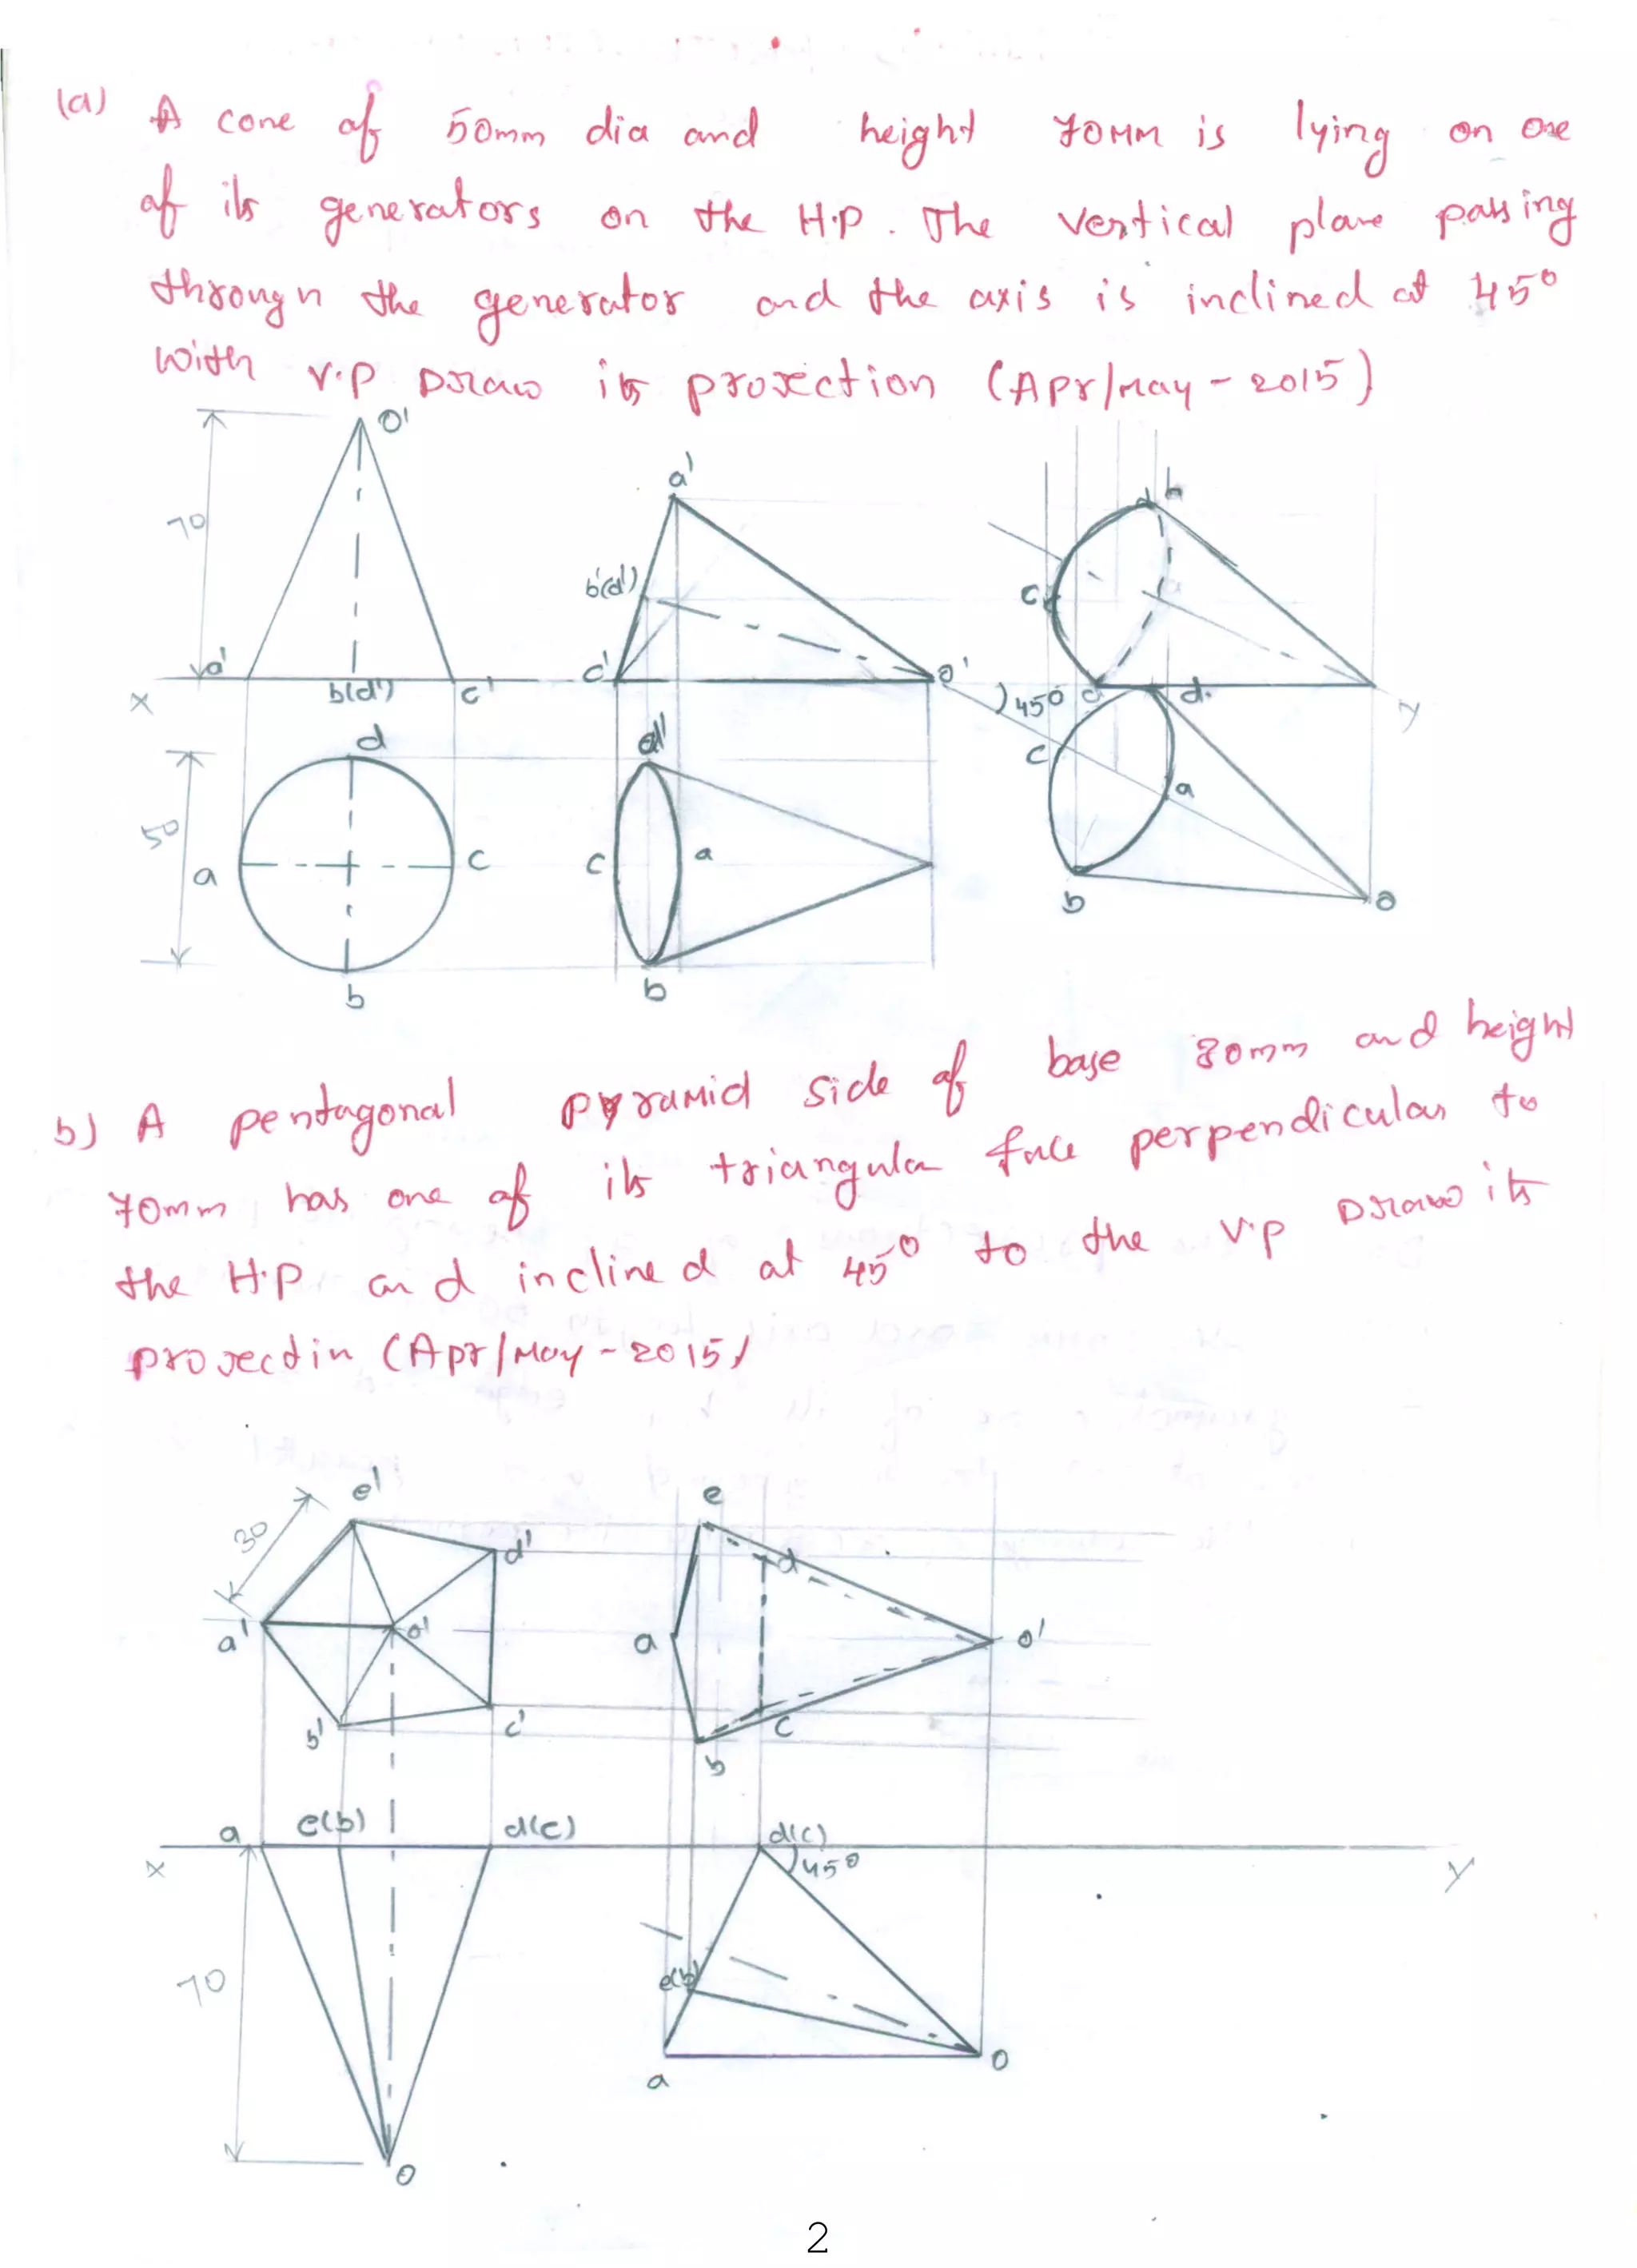 (a) A cone of 50mm dia and height 70mm is lying on one
of its generators on the H.P. The vertical plane passing
through the generator and the axis is inclined at 45°
with V.P Draw its projection (Apr/May-2015)
o'
70
a' b(d') c'
x
d
50
a c
b
a'
b'(d')
c' o'
d'
c a
b
d b
c a
45° d.
y
c
a
b o
b) A pentagonal pyramid side of base 30mm and height
70mm has one of its triangular face perpendicular to
the H.P and inclined at 45° to the V.P Draw its
projectin (Apr/May-2015)
e'
30
d'
a' o'
b' c'
a e(b) d(c)
x
70
o
e
d
a o'
c
b
d(c)
45°
y
e(b)
a o
2